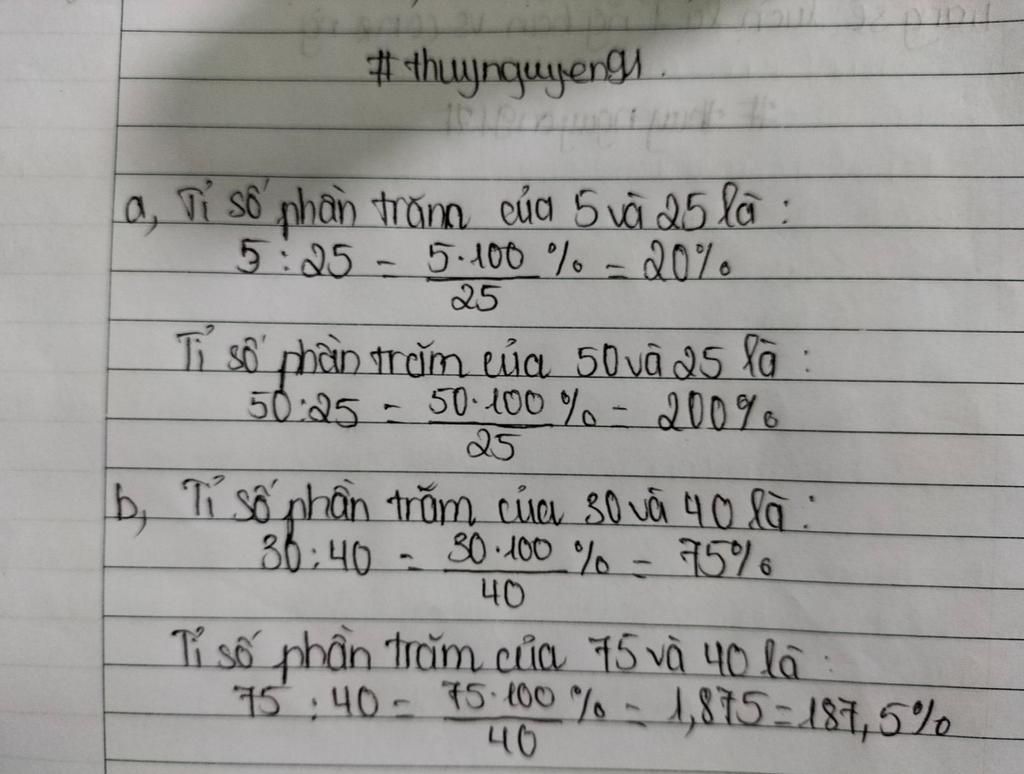 #thuynguyeng1.
a, Tỉ số phần trăm của 5 và 25 là :
5 : 25 = 5.100/25 % = 20%
Tỉ số phần trăm của 50 và 25 là :
50:25 = 50.100/25 % = 200%
b, Tỉ số phần trăm của 30 và 40 là :
30:40 = 30.100/40 % = 75%
Tỉ số phần trăm của 75 và 40 là :
75 : 40 = 75.100/40 % = 1,875 = 187,5%